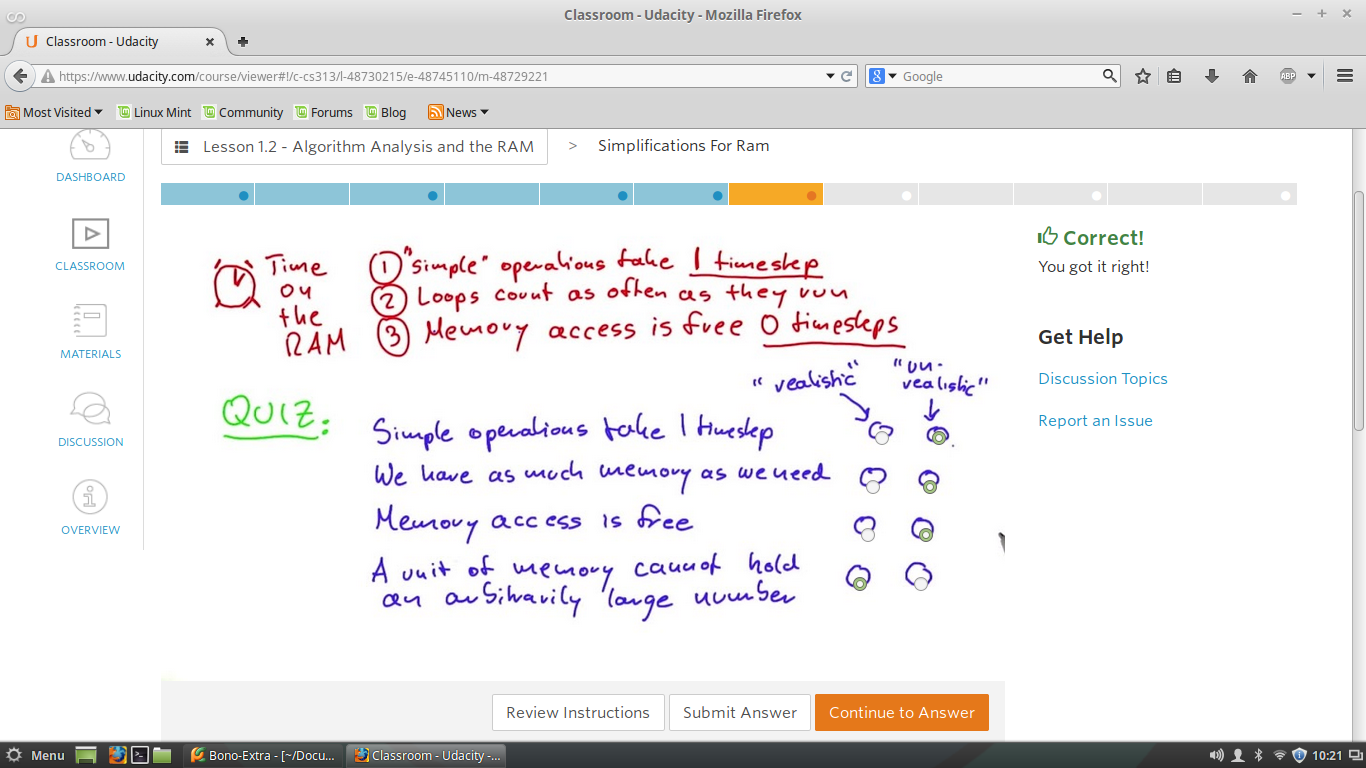 Classroom - Udacity - Mozilla Firefox
Classroom - Udacity
https://www.udacity.com/course/viewer#!/c-cs313/l-48730215/e-48745110/m-48729221
Google
ABP
Most Visited Linux Mint Community Forums Blog News
DASHBOARD
CLASSROOM
MATERIALS
DISCUSSION
OVERVIEW
Lesson 1.2 - Algorithm Analysis and the RAM > Simplifications For Ram
Time on the RAM
1 "simple" operations take 1 timestep
2 Loops count as often as they run
3 Memory access is free 0 timesteps
"realistic" "un-realistic"
QUIZ:
Simple operations take 1 timestep
We have as much memory as we need
Memory access is free
A unit of memory cannot hold
an arbitrarily large number
Correct!
You got it right!
Get Help
Discussion Topics
Report an Issue
Review Instructions Submit Answer Continue to Answer
Menu Bono-Extra - [~/Docu... Classroom - Udacity -... 10:21